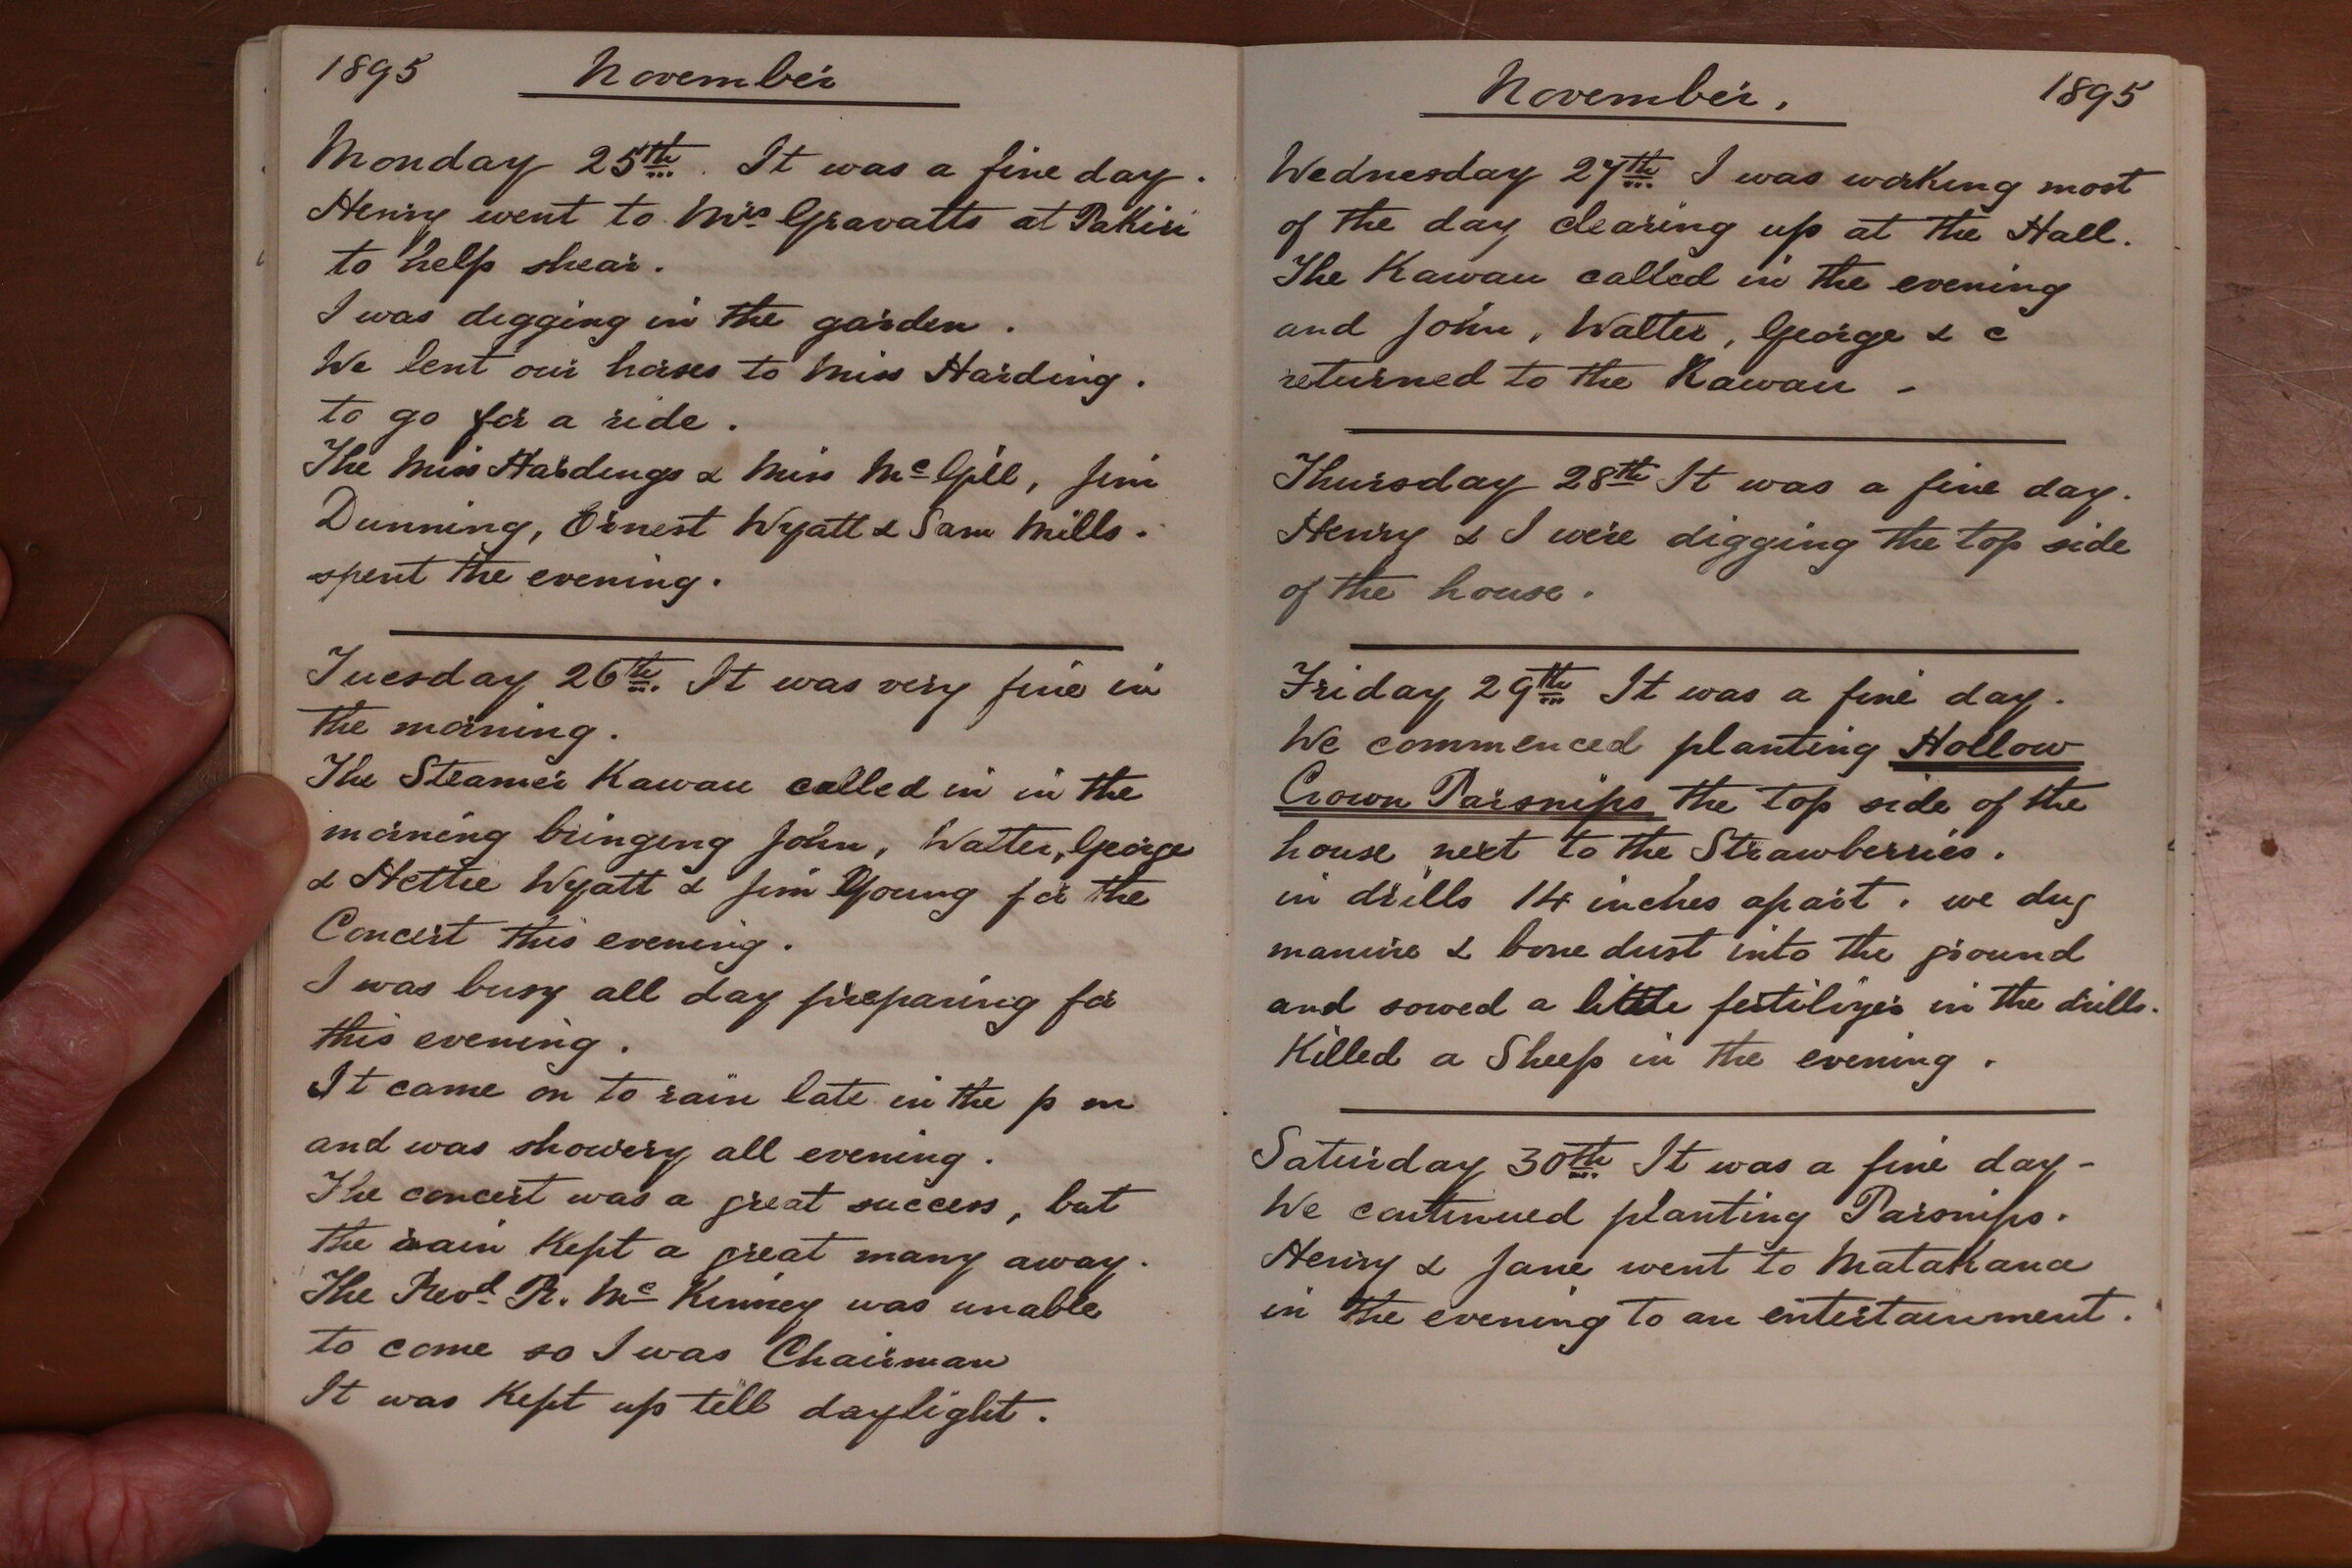 1895 November
Monday 25th. It was a fine day.
Henry went to Mrs Gravatts at Pakiri
to help shear.
I was digging in the garden.
We lent our horses to Miss Harding.
to go for a ride.
The Miss Hardings & Miss McGill, Jim
Dunning, Ernest Wyatt & Sam Mills.
spent the evening.
Tuesday 26th. It was very fine in
the morning.
The Steamer Kawau called in in the
morning bringing John, Walter, George
& Hettie Wyatt & Jim Young for the
Concert this evening.
I was busy all day preparing for
this evening.
It came on to rain late in the p m
and was showery all evening.
The concert was a great success, but
the rain Kept a great many away.
The Revd R. Mc Kinney was unable
to come so I was Chairman
It was Kept up till daylight.
November. 1895
Wednesday 27th I was working most
of the day clearing up at the Hall.
The Kawau called in the evening
and John, Walter, George & c
returned to the Kawau -
Thursday 28th It was a fine day.
Henry & I were digging the top side
of the house.
Friday 29th It was a fine day.
We commenced planting Hollow
Crown Parsnips the top side of the
house next to the Strawberries.
in drills 14 inches apart. we dug
manure & bone dust into the ground
and sowed a little fertilizer in the drills.
Killed a Sheep in the evening.
Saturday 30th. It was a fine day -
We continued planting Parsnips.
Henry & Jane went to Matakana
in the evening to an entertainment.